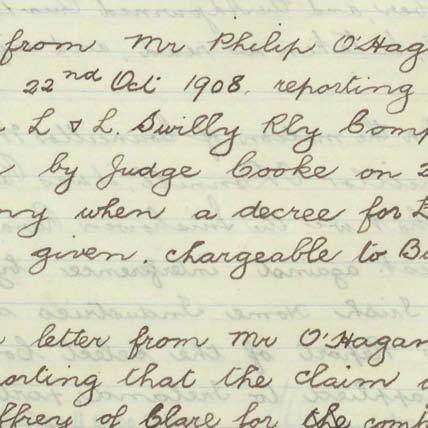 from Mr Philip O'Hag
22nd Oct 1908, reporting
L & L. Swilly Rly Comp
by Judge Cooke on 2
ny when a decree for L
given. chargeable to Bu
letter from Mr O'Hagan
orting that the claim
ffrey of Clare for the comp